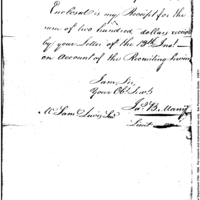 Enclosed is my Receipt for the
sum of two hundred dollars receiv
by your Letter of the 19th Inst—
on Account of the Recruiting Service
I am, Sir,
Your Obt. Servt
Jas. B. Many
Lieut
Mr Saml Lewis Senr